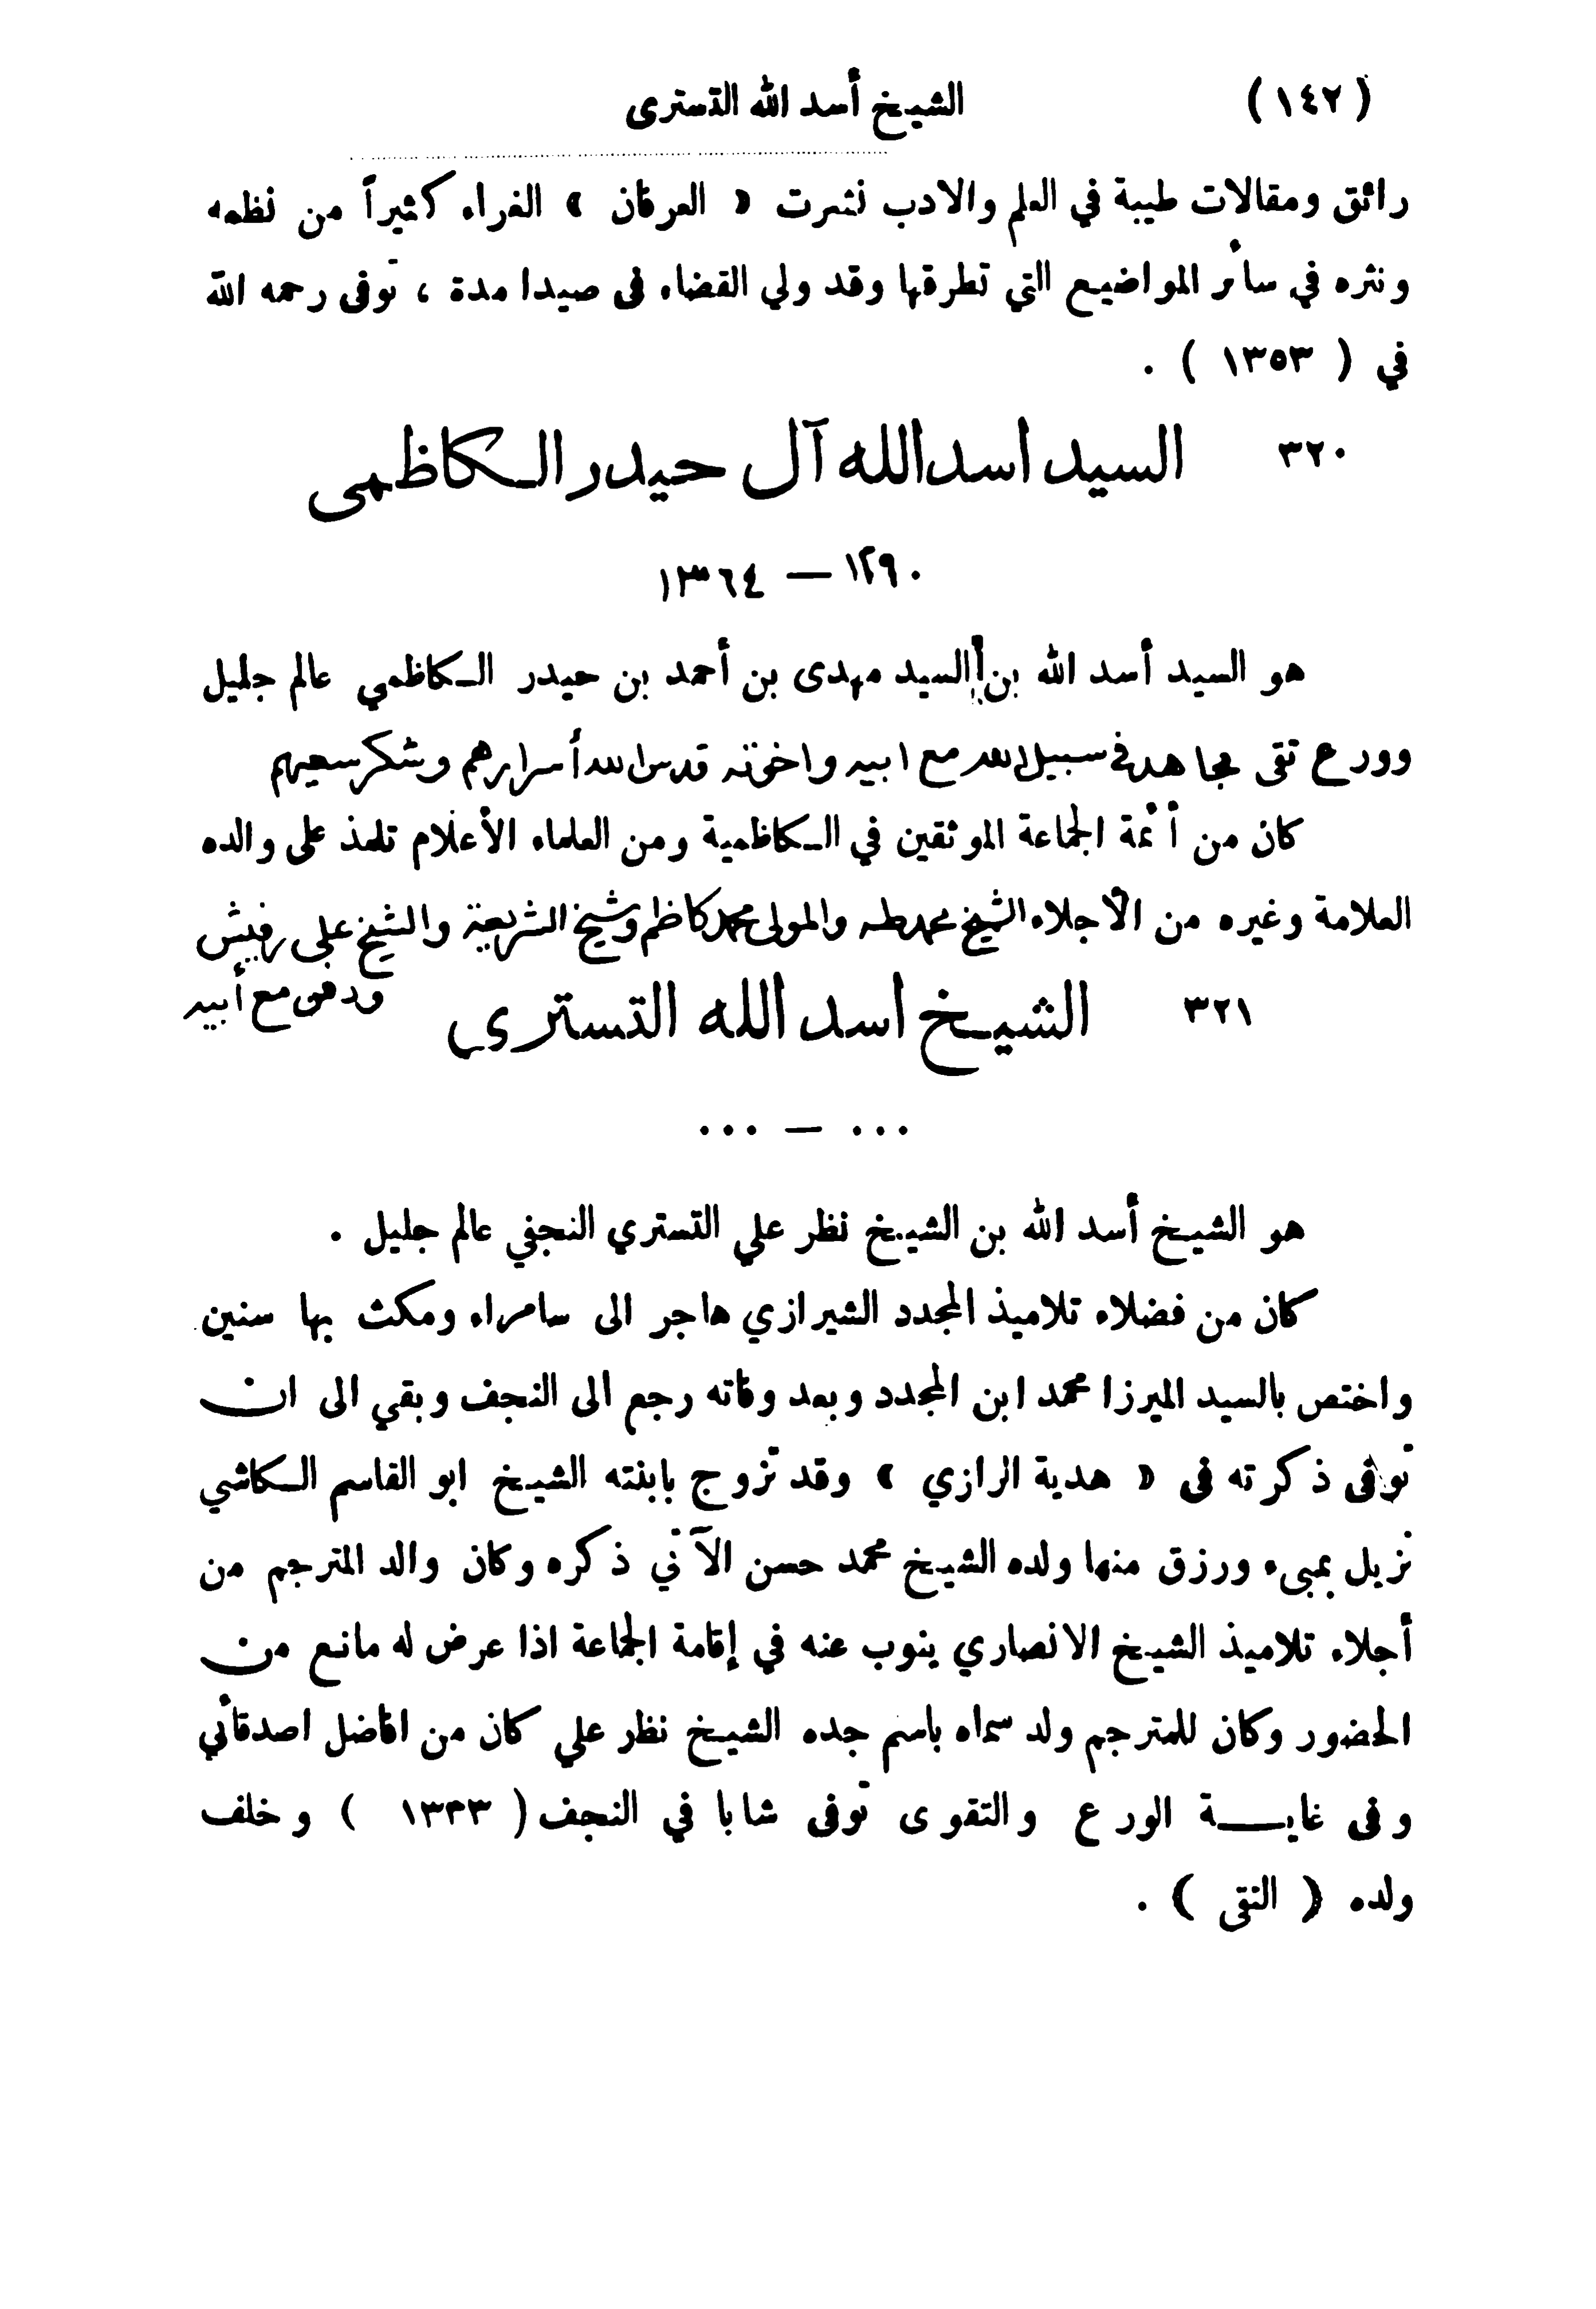 (١٤٢) الشيخ أسد الله التسترى
رائق ومقالات طيبة في العلم والادب نشرت « العرفان » الغراء كثيراً من نظمه
ونثره في سائر المواضيع التي تطرقها وقد ولي القضاء فى صيدا مدة ، توفى رحمه الله
في ( ١٣٥٣ ) .
٣٢٠ السيد اسد الله آل حيدر الكاظمى
١٢٩٠ — ١٣٦٤
هو السيد أسد الله بن السيد مهدى بن أحمد بن حيدر الكاظمي عالم جليل
وورع تقى مجاهد في سبيل الله مع ابيه واخوته قدس الله أسرارهم وشكر سعيهم
كان من أئمة الجماعة الموثقين في الكاظمية ومن العلماء الأعلام تلمذ على والده
العلامة وغيره من الأجلاء الشيخ محمد طه والمولى محمد كاظم وشيخ الشريعة والشيخ علي رفيش
ودفن مع أبيه
٣٢١ الشيخ اسد الله التستري
... — ...
هو الشيخ أسد الله بن الشيخ نظر علي التستري النجفي عالم جليل .
كان من فضلاء تلاميذ المجدد الشيرازي هاجر الى سامراء ومكث بها سنين
واختص بالسيد الميرزا محمد ابن المجدد وبعد وفاته رجع الى النجف وبقي الى ان
توفى ذكرته فى « هدية الرازي » وقد تزوج بابنته الشيخ ابو القاسم الكاشي
نزيل بمبىء ورزق منها ولده الشيخ محمد حسن الآتي ذكره وكان والد المترجم من
أجلاء تلاميذ الشيخ الانصاري ينوب عنه في إقامة الجماعة اذا عرض له مانع من
الحضور وكان للمترجم ولد سماه باسم جده الشيخ نظر علي كان من افاضل اصدقائي
وفى غاية الورع والتقوى توفى شابا في النجف ( ١٣٣٣ ) وخلف
ولده ( النقى ) .